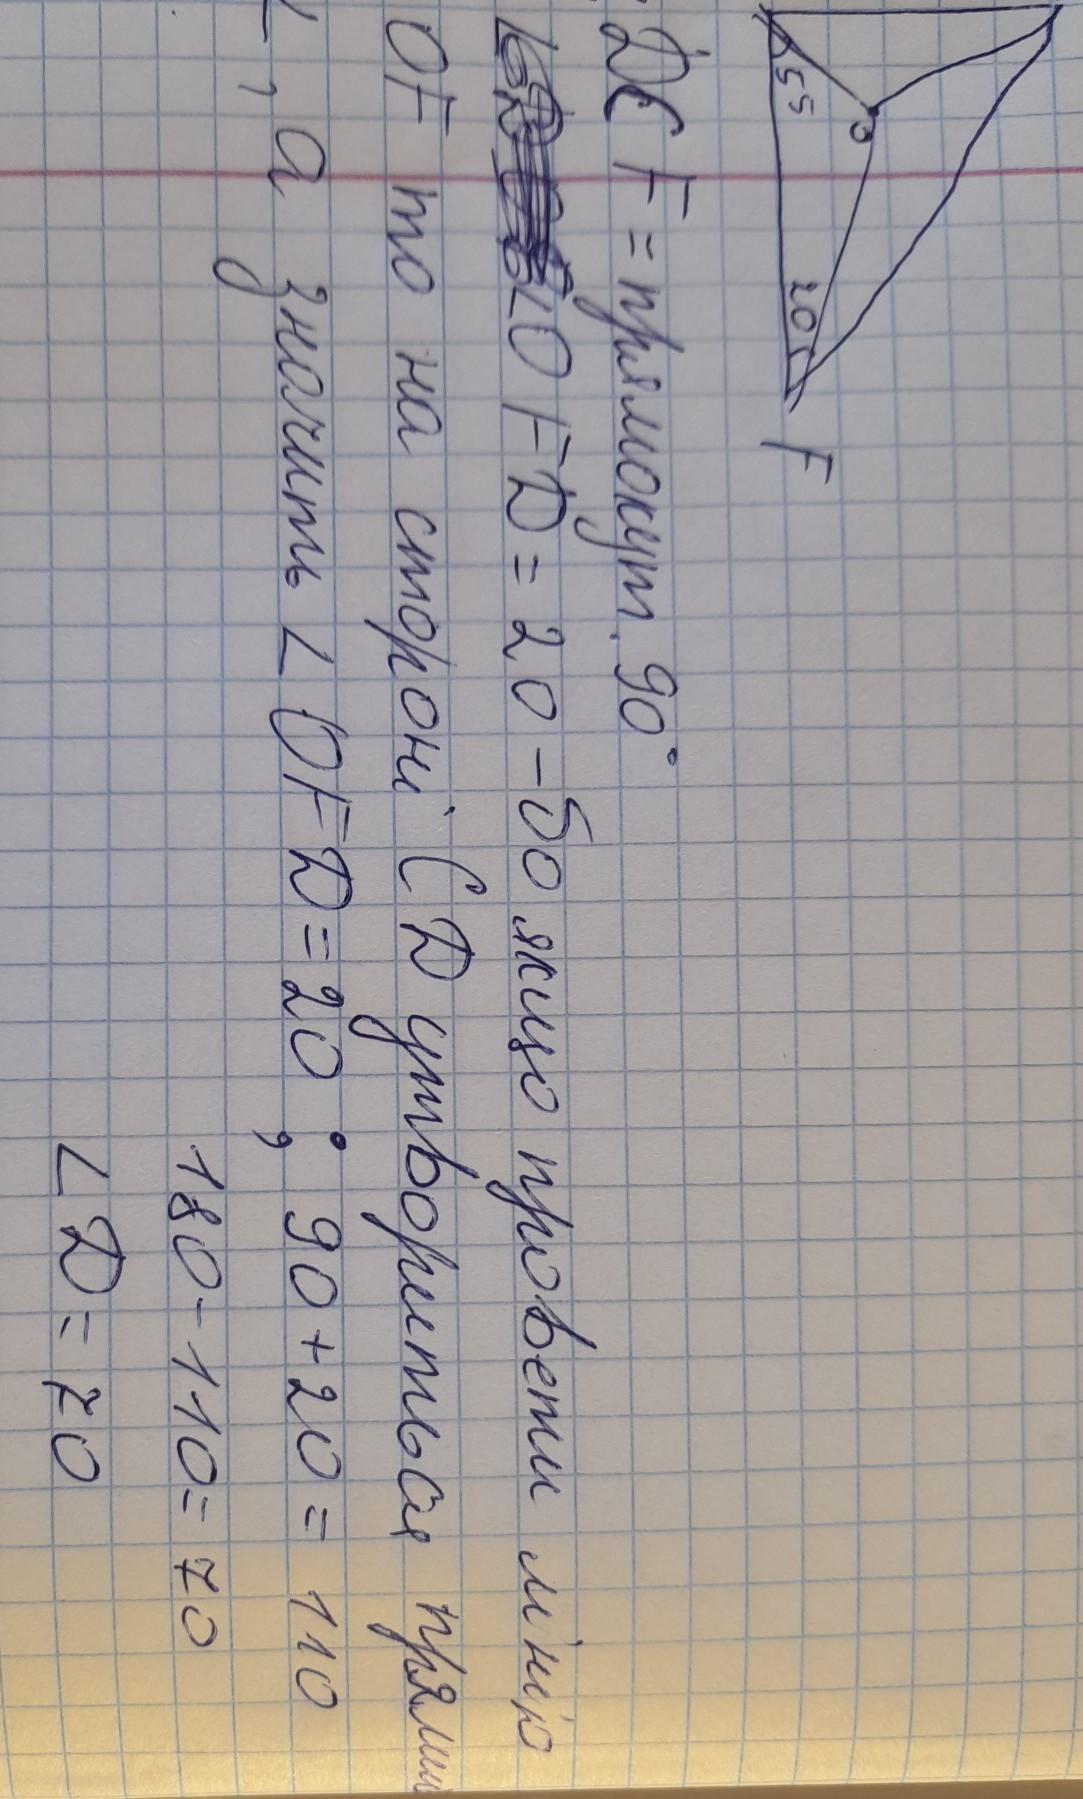 55
O
20
F
DCF = прямокут. 90°
∠OFD = 20 - бо якщо провести лінію
OF то на стороні CD утвориться
∠, а значить ∠OFD = 20°; 90 + 20 = 110
180 - 110 = 70
∠D = 70